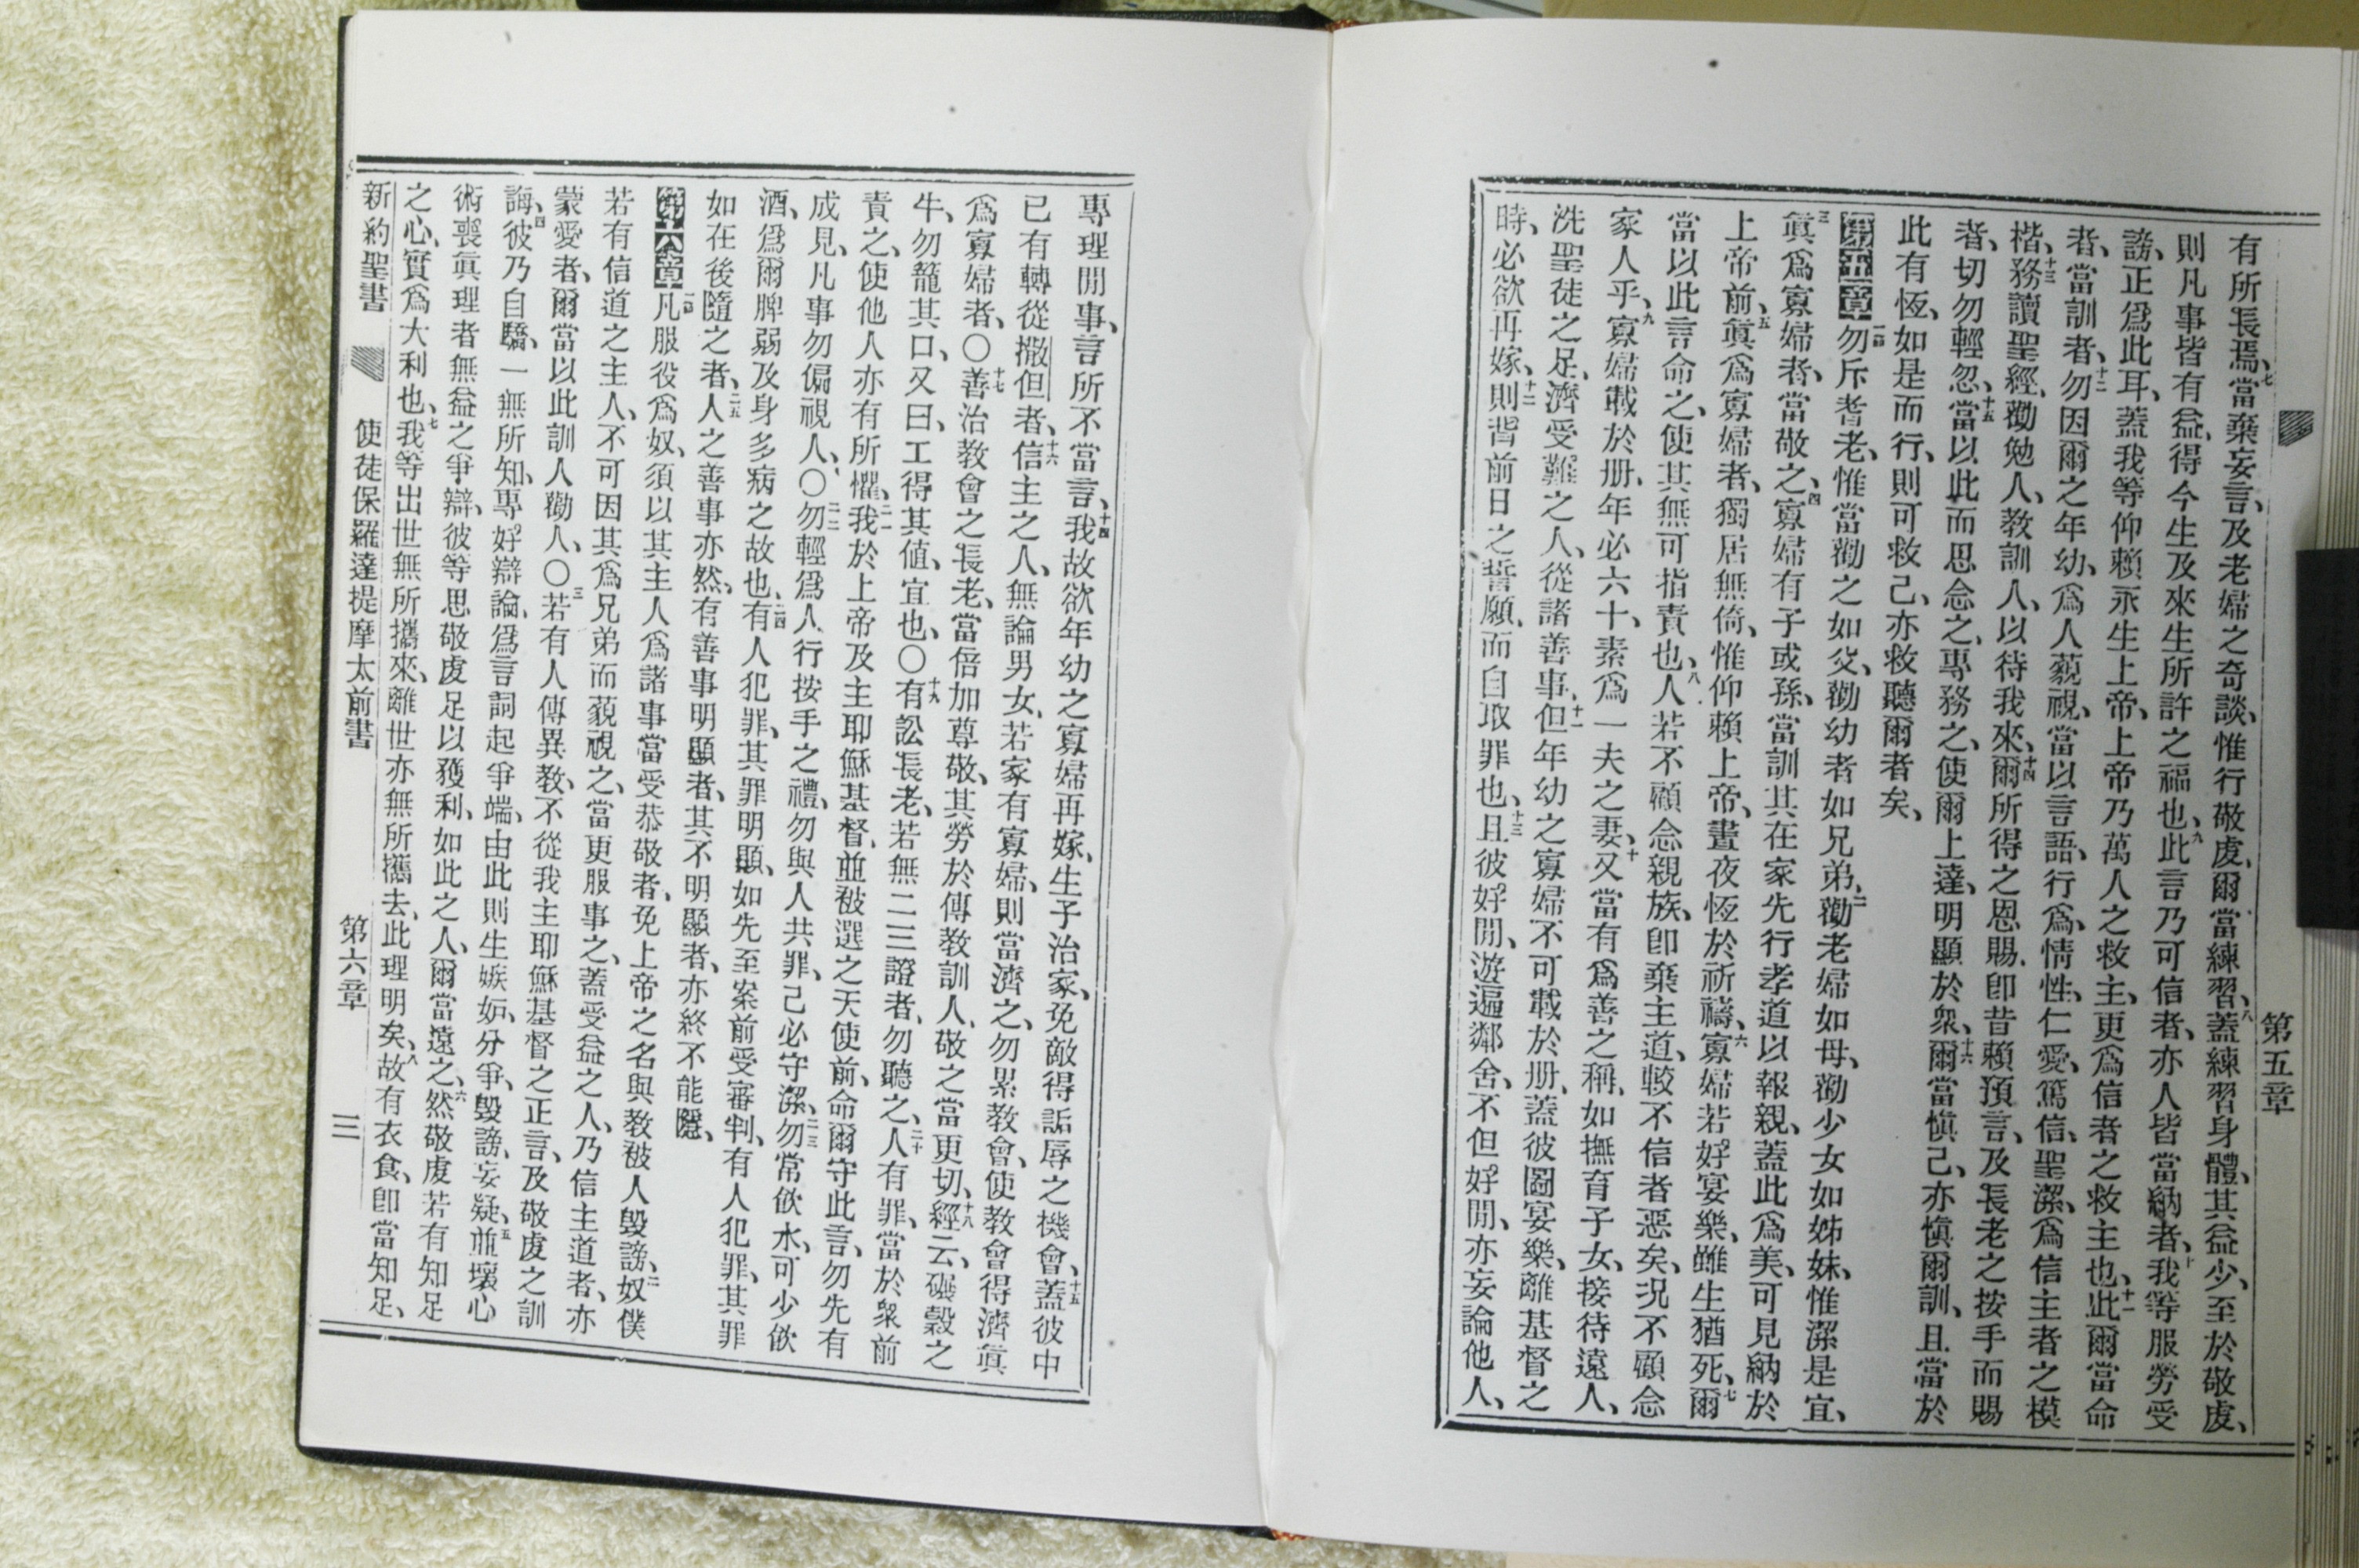 第五章
有所長焉、七當棄妄言、及老婦之奇談、惟行敬虔、爾當練習、八蓋練習身體、其益少、至於敬虔、
則凡事皆有益、得今生及來生所許之福也、九此言乃可信者、亦人皆當納者、十我等服勞受
謗、正爲此耳、蓋我等仰賴永生上帝、上帝乃萬人之救主、更爲信者之救主也、十一此爾當命
者、當訓者、十二勿因爾之年幼、爲人藐視、當以言語、行爲、情性、仁愛、篤信、聖潔、爲信主者之模
楷、十三務讀聖經、勸勉人、教訓人、以待我來、十四爾所得之恩賜、卽昔賴預言、及長老之按手而賜
者、切勿輕忽、十五當以此而思念之、專務之、使爾上達、明顯於衆、十六爾當愼己、亦愼爾訓、且當於
此有恆、如是而行、則可救己、亦救聽爾者矣、
第五章一節勿斥耆老、惟當勸之如父、勸幼者如兄弟、二勸老婦如母、勸少女如姊妹、惟潔是宜、
三眞爲寡婦者、當敬之、四寡婦有子或孫、當訓其在家先行孝道以報親、蓋此爲美、可見納於
上帝前、五眞爲寡婦者、獨居無倚、惟仰賴上帝、晝夜恆於祈禱、六寡婦若好宴樂、雖生猶死、七爾
當以此言命之、使其無可指責也、八人若不顧念親族、卽棄主道、較不信者惡矣、況不顧念
家人乎、九寡婦載於册、年必六十、素爲一夫之妻、十又當有爲善之稱、如撫育子女、接待遠人、
洗聖徒之足、濟受難之人、從諸善事、十一但年幼之寡婦不可載於册、蓋彼圖宴樂、離基督之
時、必欲再嫁、十二則背前日之誓願、而自取罪也、十三且彼好閒、遊遍鄰舍、不但好閒、亦妄論他人、
專理閒事、言所不當言、十四我故欲年幼之寡婦再嫁、生子治家、免敵得詬辱之機會、十五蓋彼中
已有轉從撒但者、十六信主之人、無論男女、若家有寡婦、則當濟之、勿累教會、使教會得濟眞
爲寡婦者、〇十七善治教會之長老、當倍加尊敬、其勞於傳教訓人、敬之當更切、十八經云、碾穀之
牛、勿籠其口、又曰、工得其値、宜也、〇十九有訟長老、若無二三證者、勿聽之、二十人有罪、當於衆前
責之、使他人亦有所懼、二一我於上帝及主耶穌基督、並被選之天使前、命爾守此言、勿先有
成見、凡事勿偏視人、〇二二勿輕爲人行按手之禮、勿與人共罪、己必守潔、二三勿常飮水、可少飮
酒、爲爾脾弱及身多病之故也、二四有人犯罪、其罪明顯、如先至案前受審判、有人犯罪、其罪
如在後隨之者、二五人之善事亦然、有善事明顯者、其不明顯者、亦終不能隱、
第六章一節凡服役爲奴、須以其主人爲諸事當受恭敬者、免上帝之名與教被人毀謗、二奴僕
若有信道之主人、不可因其爲兄弟而藐視之、當更服事之、蓋受益之人、乃信主道者、亦
蒙愛者、爾當以此訓人勸人、〇三若有人傳異教、不從我主耶穌基督之正言、及敬虔之訓
誨、四彼乃自驕、一無所知、專好辯論、爲言詞起爭端、由此則生嫉妒、分爭、毀謗、妄疑、五並壞心
術喪眞理者無益之爭辯、彼等思敬虔足以獲利、如此之人、爾當遠之、六然敬虔若有知足
之心、實爲大利也、七我等出世無所攜來、離世亦無所攜去、此理明矣、八故有衣食、卽當知足、
新約聖書 使徒保羅達提摩太前書 第六章 三